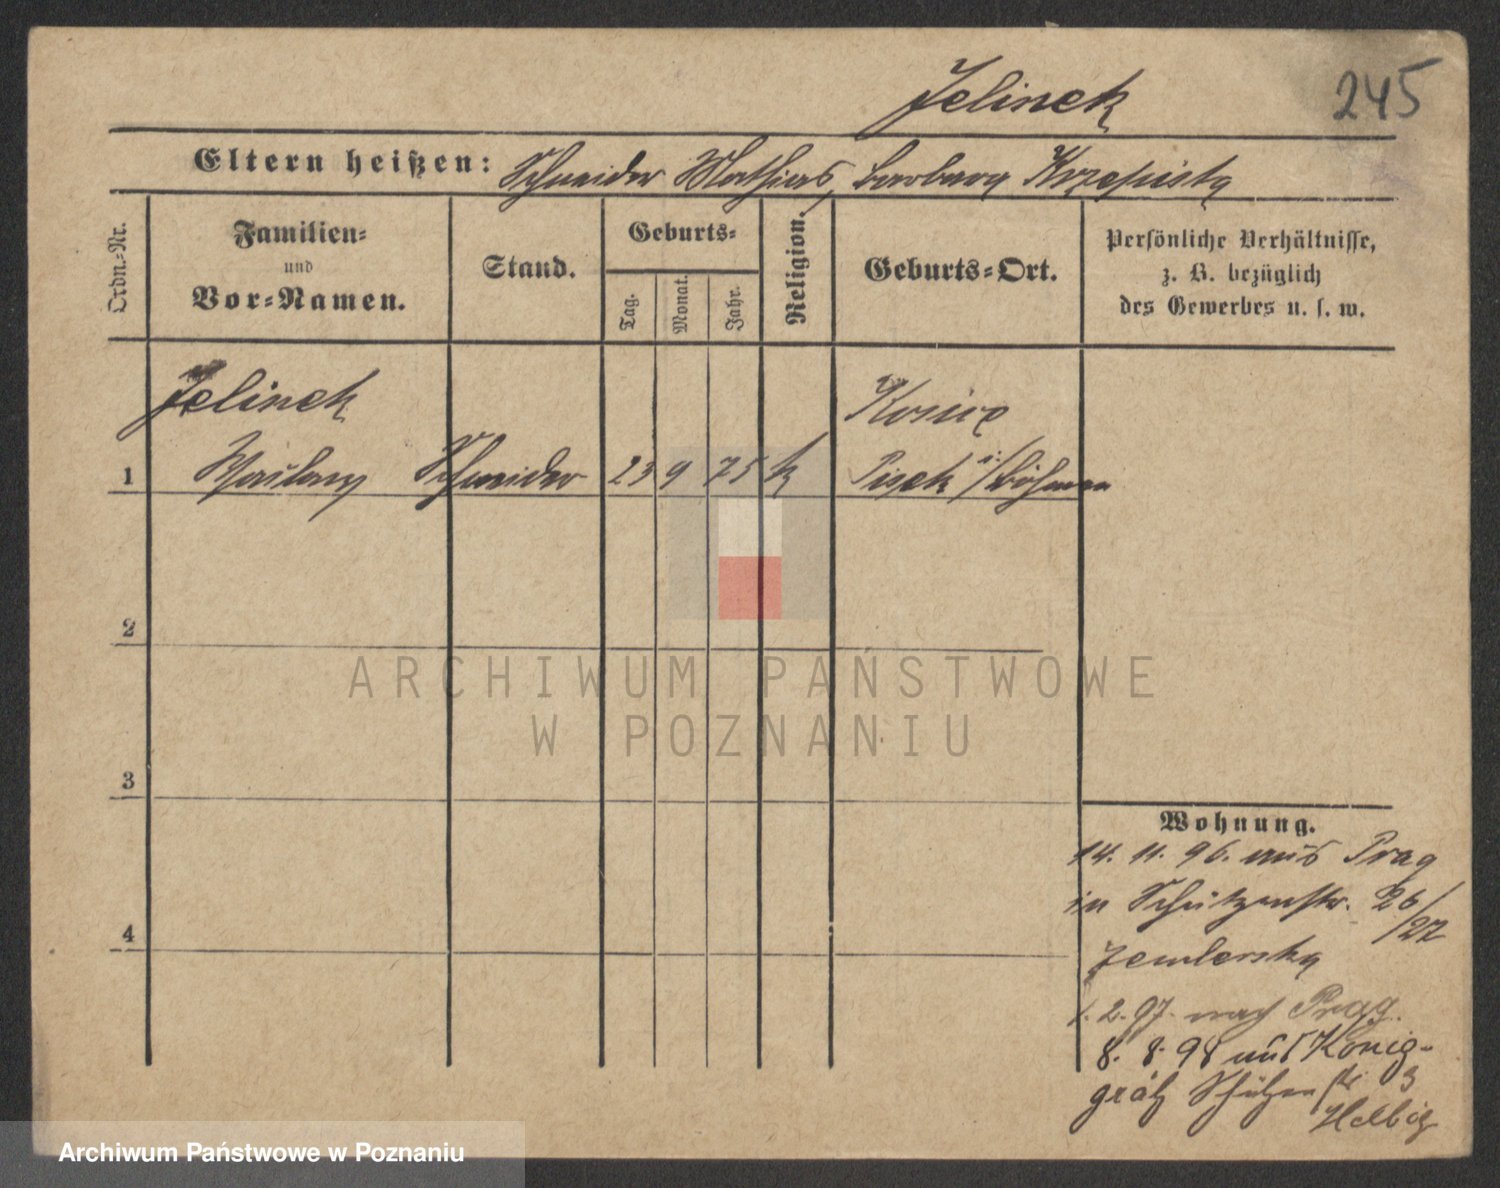 Jelinek
245
Eltern heißen: Schneider Mathias, barbara Krzepista
Ordn.-Nr.
Familien-
und
Vor-Namen.
Stand.
Geburts-
Tag.
Monat.
Jahr.
Religion.
Geburts-Ort.
Persönliche Verhältnisse,
z. B. bezüglich
des Gewerbes u. s. w.
Jelinek
1 Schneider 23 9 75 k
Pisek i/böhmen
2
3
4
Wohnung.
14. 11. 96. aus Prag
in Schützenstr. 26/27
Zemlerska
1. 2. 97. nach Prag.
8. 8. 98 aus König-
grätz Schützenstr 3
Helbig
ARCHIWUM PAŃSTWOWE
W POZNANIU
Archiwum Państwowe w Poznaniu